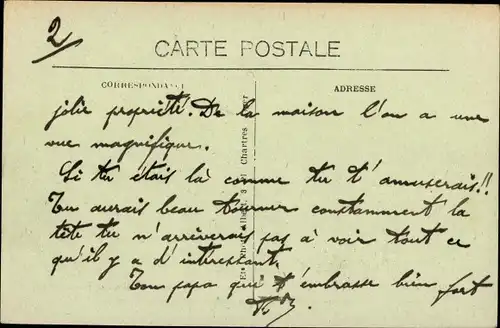 2
CARTE POSTALE
CORRESPONDANCE
ADRESSE
jolie propriété. De la maison l'on a une
vue magnifique.
Si tu étais là comme tu t'amuserais!!
Tu aurais beau tourner constamment la
tête tu n'arriverais pas à voir tout ce
qu'il y a d'intéressant.
Ton papa qui t'embrasse bien fort
Chartres